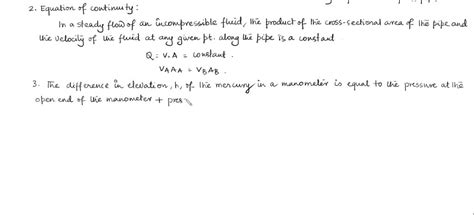 2. Equation of continuity:
In a steady flow of an incompressible fluid, the product of the cross-sectional area of the pipe and
the velocity of the fluid at any given pt. along the pipe is a constant
Q = V.A = constant.
VAAA = VBAB.
3. The difference in elevation, h, of the mercury in a manometer is equal to the pressure at the
open end of the manometer + pres